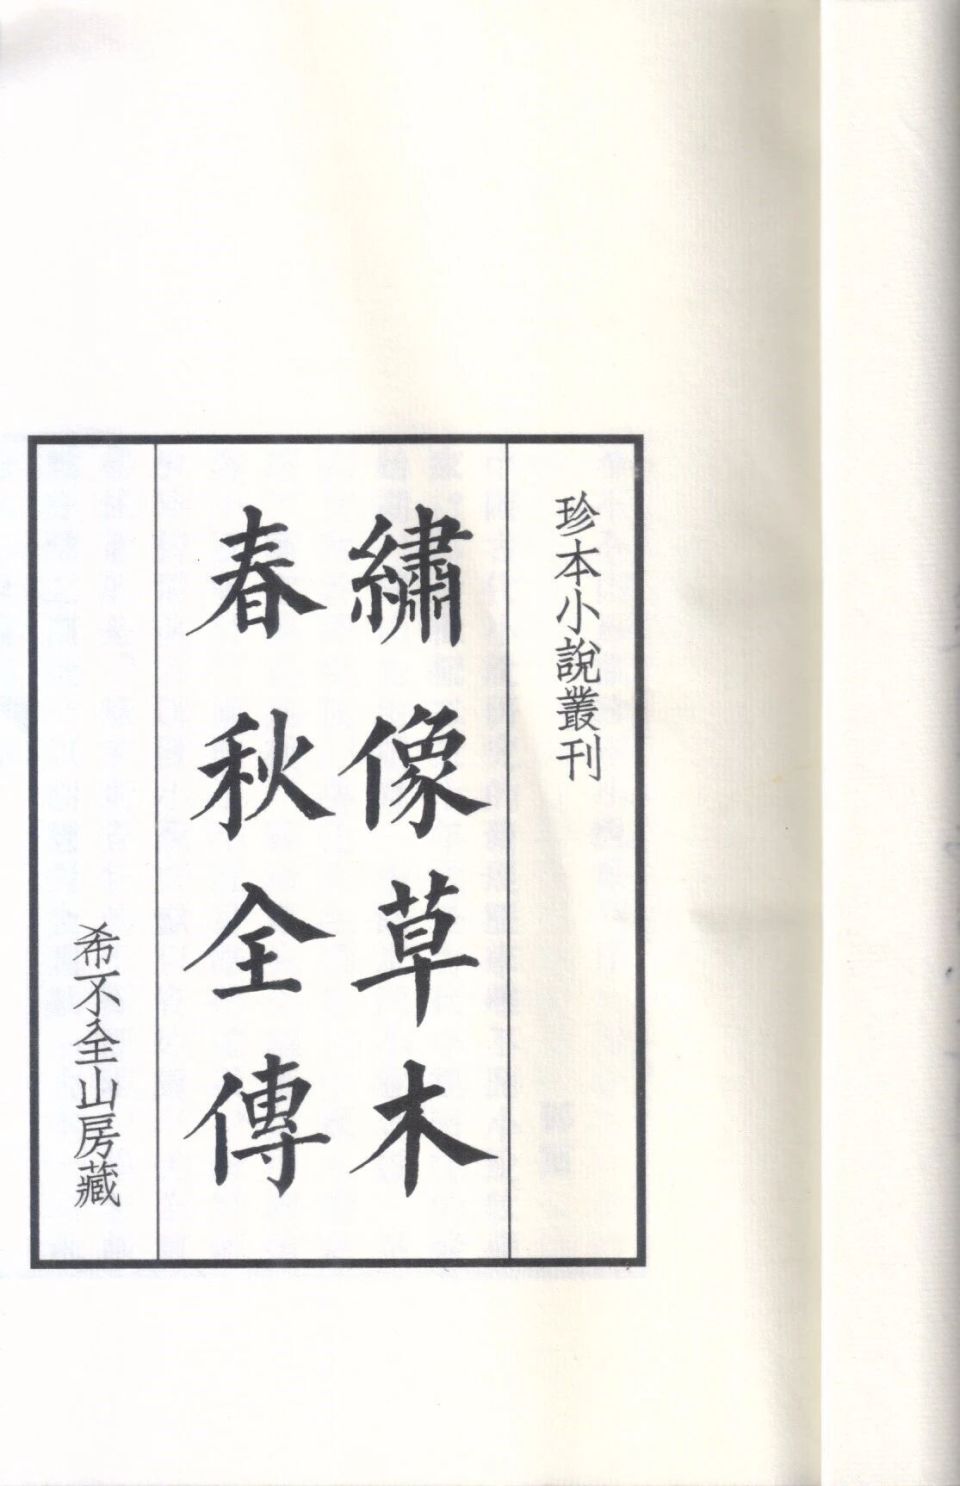 珍本小說叢刊
繡像草木
春秋全傳
希不全山房藏